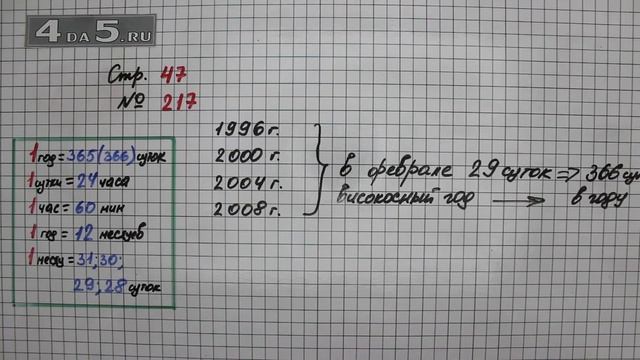 4 DA 5.RU
Стр. 47
№ 217
1 год = 365 (366) суток
1 сутки = 24 часа
1 час = 60 мин
1 год = 12 месяцев
1 месяц = 31; 30;
29; 28 суток
1996 г.
2000 г.
2004 г.
2008 г.
в феврале 29 суток => 366 сут
високосный год → в году